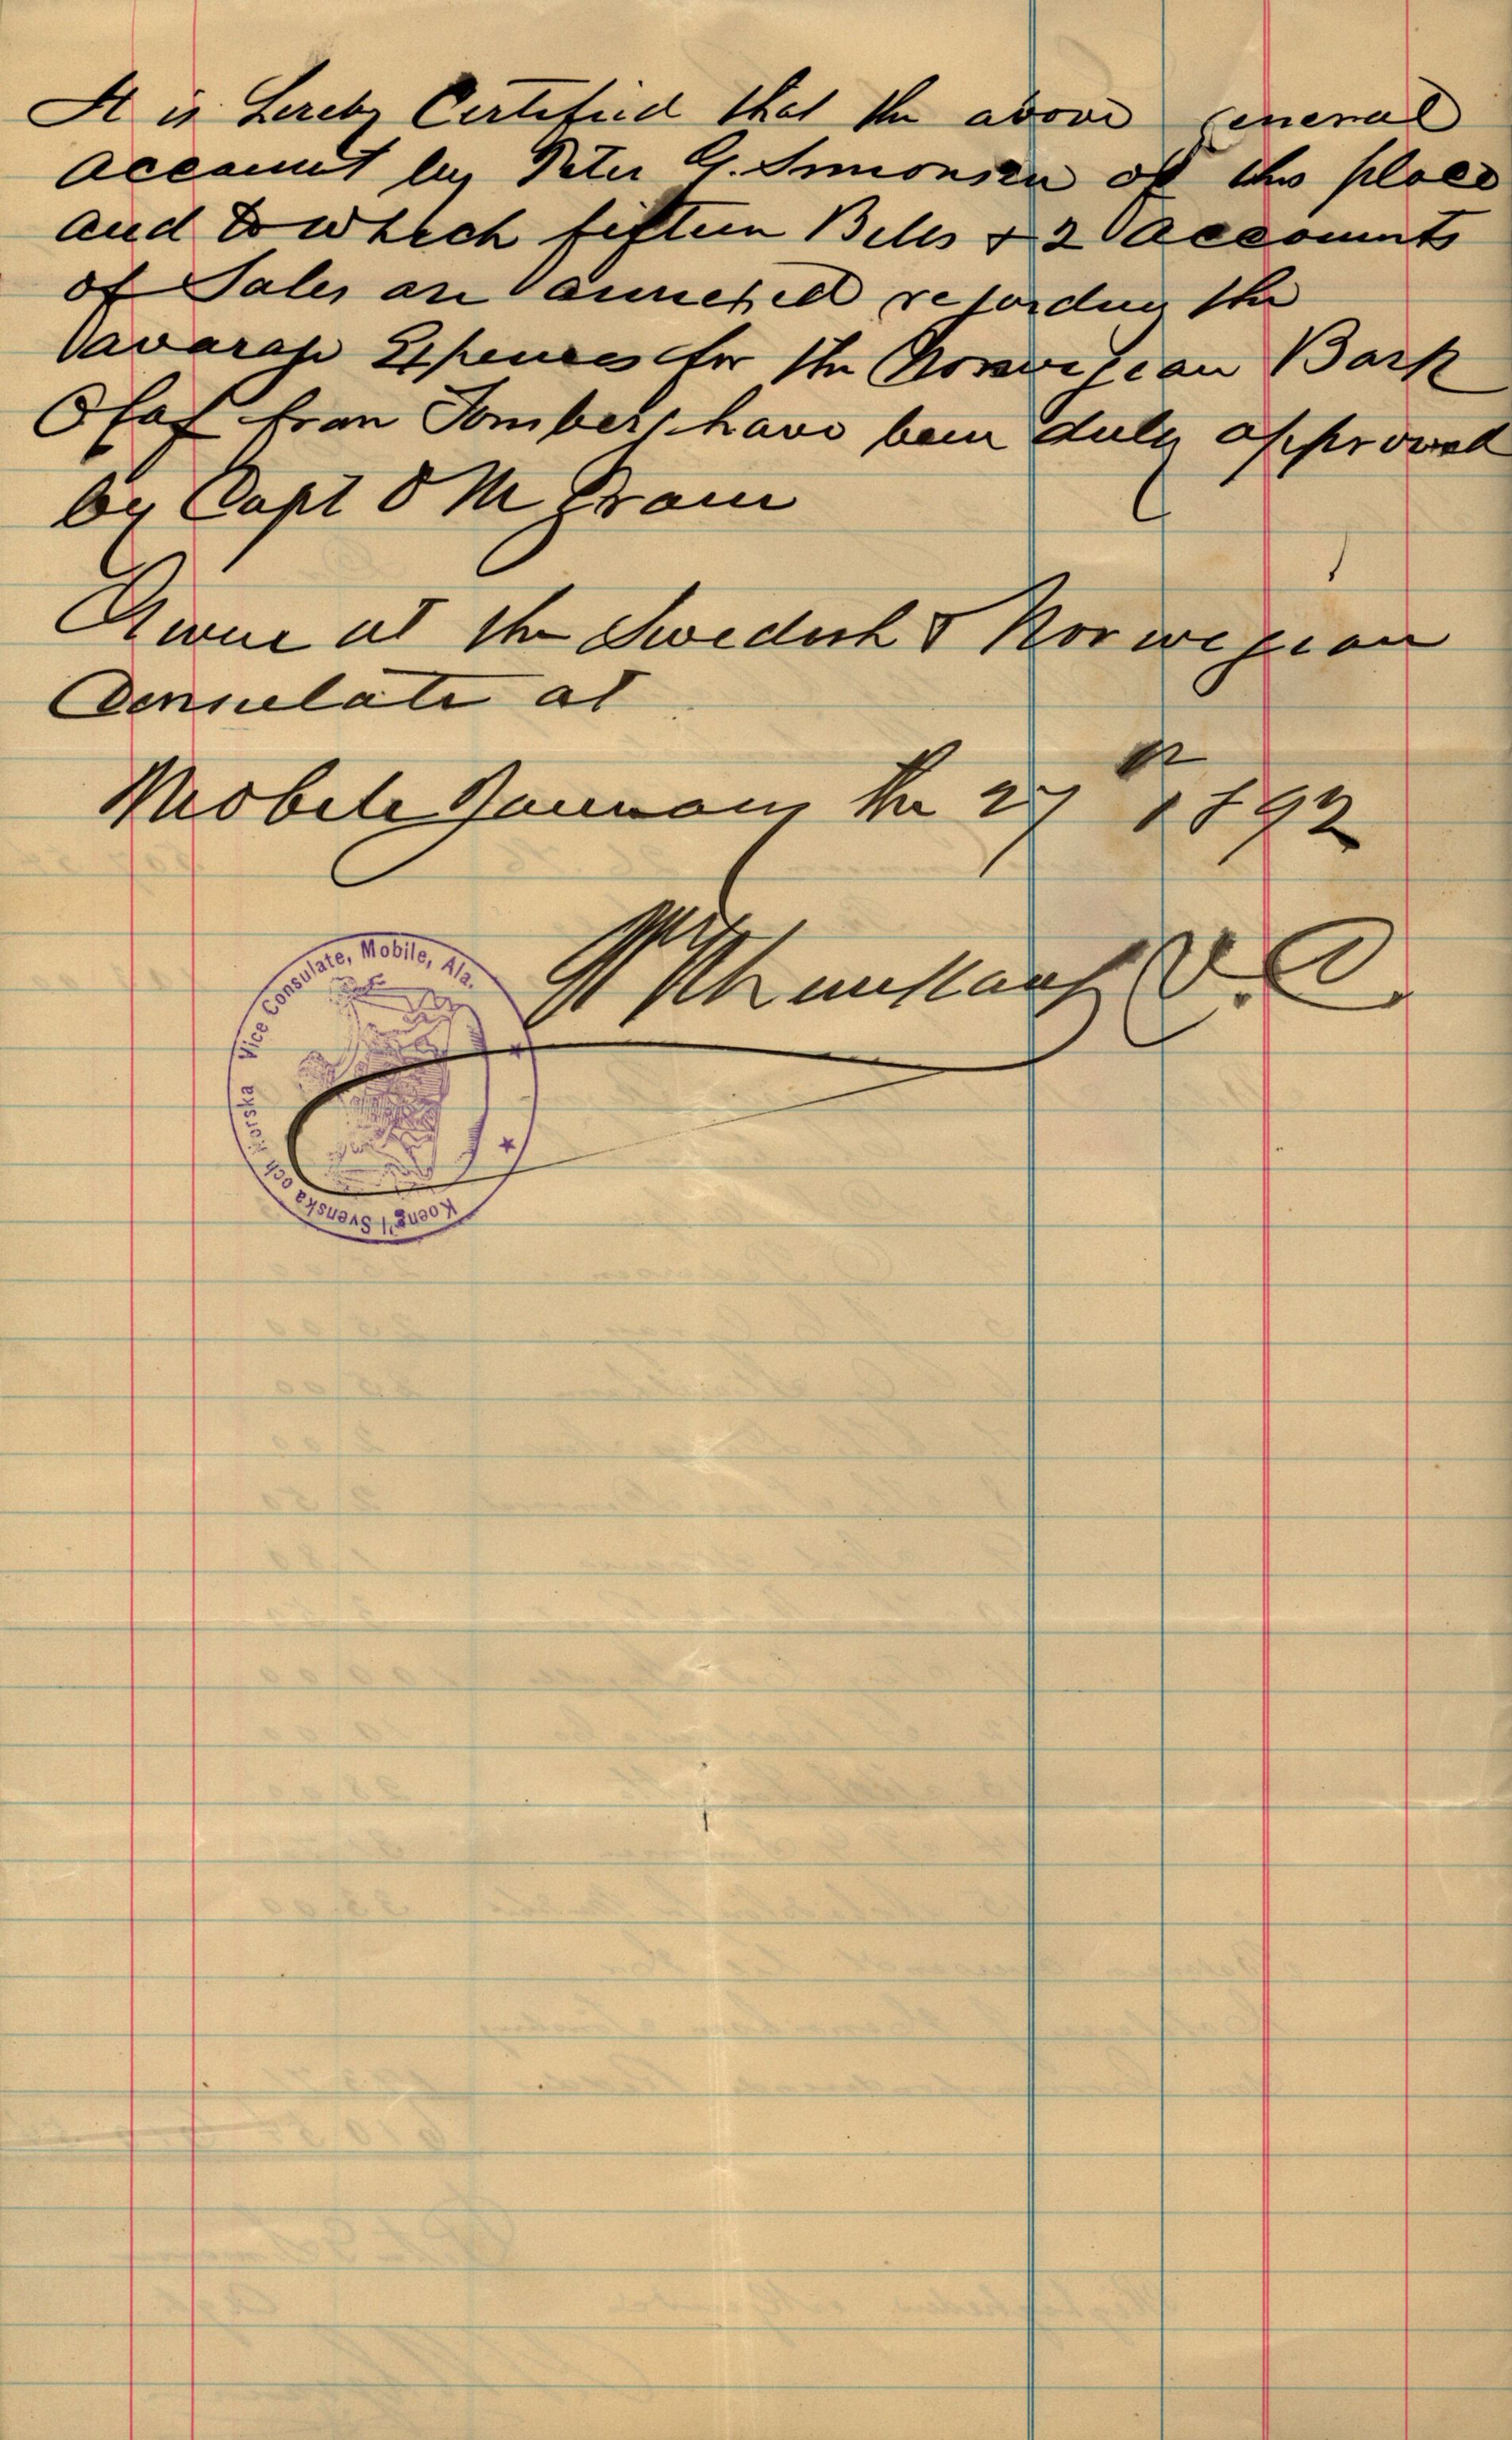 It is hereby Certified that the above general
account by Peter G. Simonsen of this place
and to which fifteen Bills & 2 accounts
of Sales are annexed regarding the
Expences for the Norwegian Bark
Olaf from have been duly approved
by Capt O M
Given at the Swedish & Norwegian
Consulate at
Mobile January the 27th 1892
V. C.
Koengl Svenska och Norska Vice Consulate, Mobile, Ala.